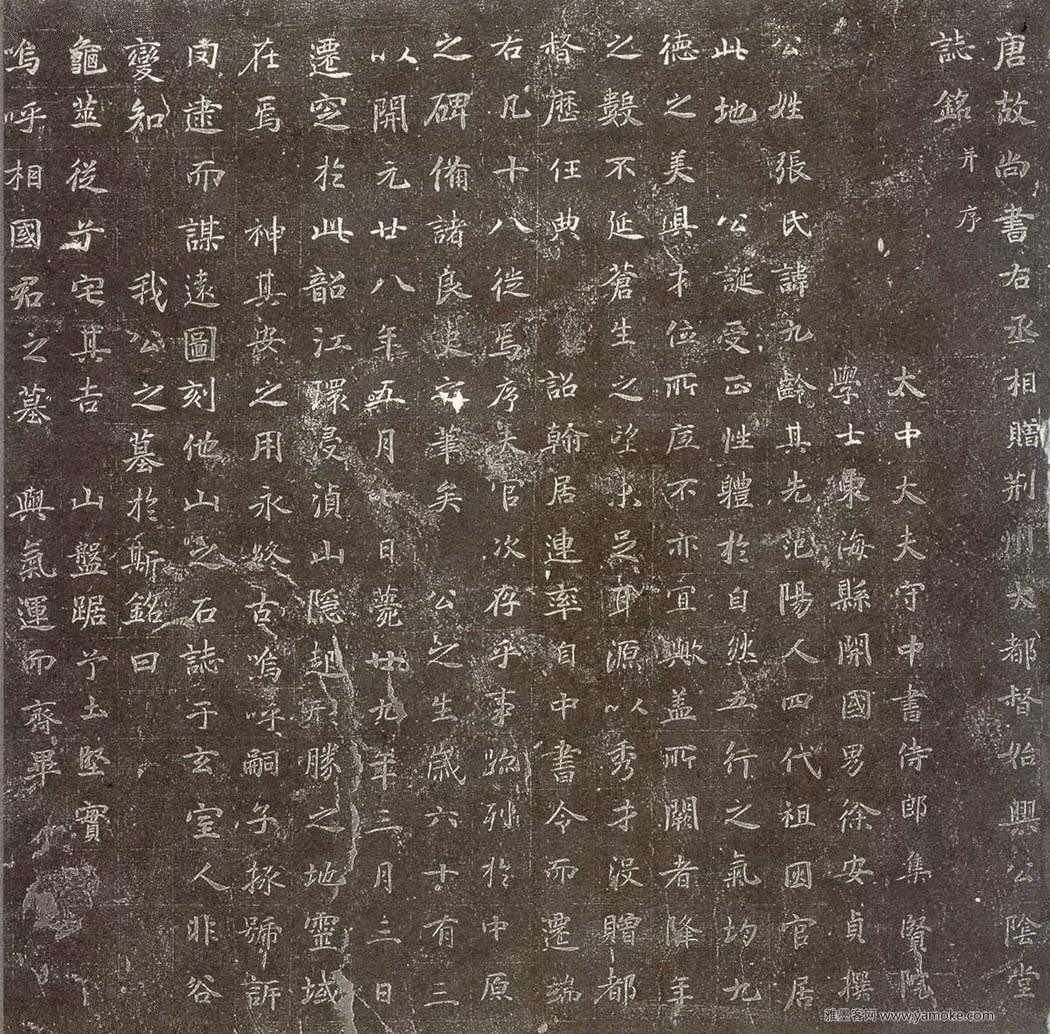 唐故尚書右丞相贈荆州大都督始興公陰堂
誌銘并序
太中大夫守中書侍郎集賢院
學士東海縣開國男徐安貞撰
公姓張氏諱九齡其先范陽人四代祖因官居
此地公誕受正性體於自然五行之氣均九
德之美俱才位所底不亦宜歟蓋所闕者降年
之數不延蒼生之望未足耳源以秀才没贈都
督歷任典詔翰居連率自中書令而遷端
右凡十八徙焉序夫官次存乎事跡列於中原
之碑備諸良史之筆矣公之生歲六十有三
以開元廿八年五月七日薨廿九年三月三日
遷窆於此韶江環浸湞山隱起形勝之地靈域
在焉神其安之用永終古嗚呼嗣子拯號訴
罔逮而謀遠圖刻他山之石誌于玄室人非谷
變知我公之墓於斯銘曰
龜筮從兮宅其吉山盤踞兮土堅實
嗚呼相國君之墓與氣運而齊畢
雅墨客网 www.yamoke.com